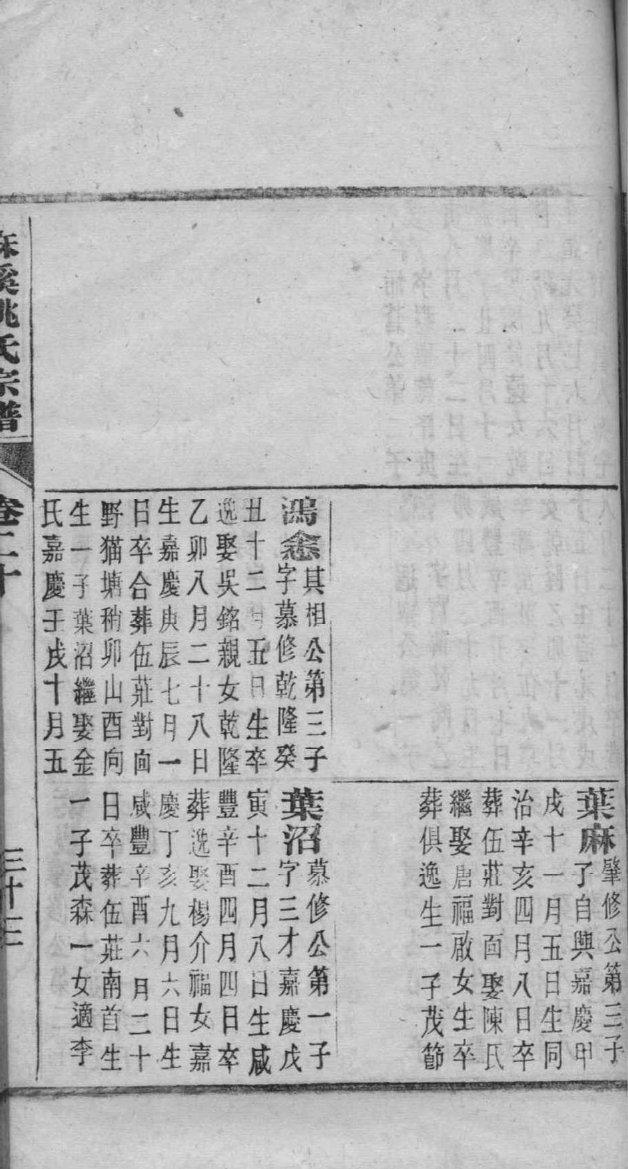 葉麻肇修公第三子
子自興嘉慶甲
戌十一月五日生同
治辛亥四月八日卒
葬伍莊對面娶陳氏
繼娶唐福啟女生卒
葬俱逸生一子茂節
鴻悆其相公第三子
字慕修乾隆癸
丑十二月五日生卒
逸娶吳銘親女乾隆
乙卯八月二十八日
生嘉慶庚辰七月一
日卒合葬伍莊對面
野猫塘稍卯山酉向
生一子葉沼繼娶金
氏嘉慶壬戌十月五
葉沼慕修公第一子
字三才嘉慶戊
寅十二月八日生咸
豐辛酉四月四日卒
葬逸娶楊介福女嘉
慶丁亥九月六日生
咸豐辛酉六月二十
日卒葬伍莊南首生
一子茂森一女適李
麻溪姚氏宗譜
卷二十
三十三